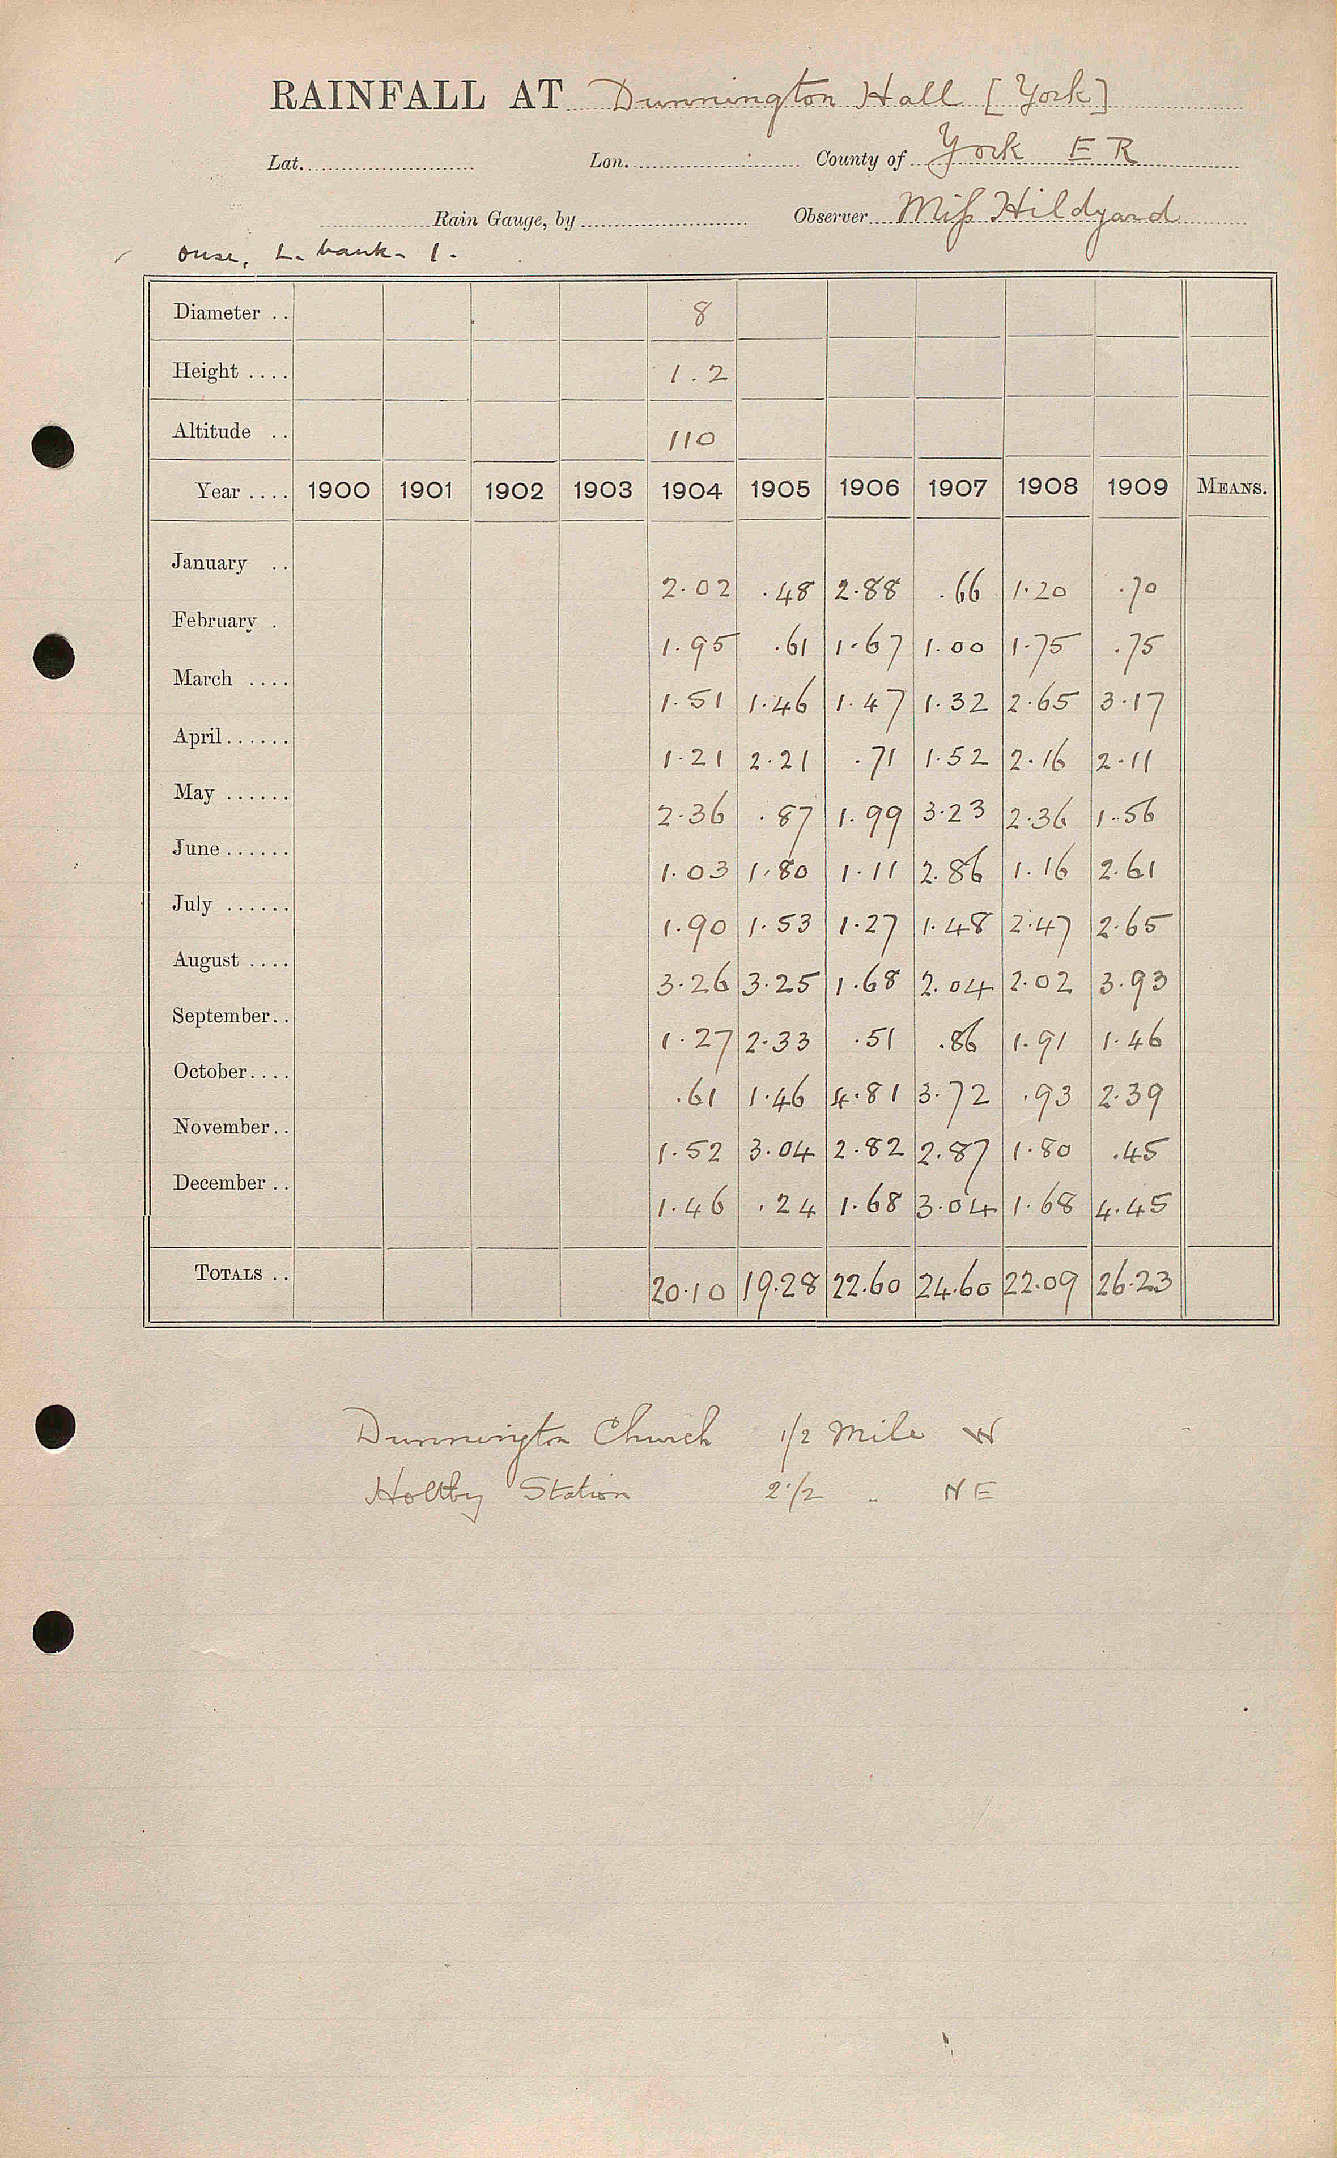 RAINFALL AT Dunnington Hall [York]
Lat. Lon. County of York E R
Rain Gauge, by Observer Miss Hildyard
Ouse, L. bank. 1.
Diameter .. 8
Height .... 1.2
Altitude .. 110
Year .... 1900 1901 1902 1903 1904 1905 1906 1907 1908 1909 MEANS.
January .. 2.02 .48 2.88 .66 1.20 .70
February . 1.95 .61 1.67 1.00 1.75 .75
March .... 1.51 1.46 1.47 1.32 2.65 3.17
April...... 1.21 2.21 .71 1.52 2.16 2.11
May ...... 2.36 .87 1.99 3.23 2.36 1.56
June...... 1.03 1.80 1.11 2.86 1.16 2.61
July ...... 1.90 1.53 1.27 1.48 2.47 2.65
August .... 3.26 3.25 1.68 2.04 2.02 3.93
September.. 1.27 2.33 .51 .86 1.91 1.46
October.... .61 1.46 4.81 3.72 .93 2.39
November.. 1.52 3.04 2.82 2.87 1.80 .45
December .. 1.46 .24 1.68 3.04 1.68 4.45
TOTALS .. 20.10 19.28 22.60 24.60 22.09 26.23
Dunnington Church 1/2 Mile W
Holtby Station 2 1/2 " NE